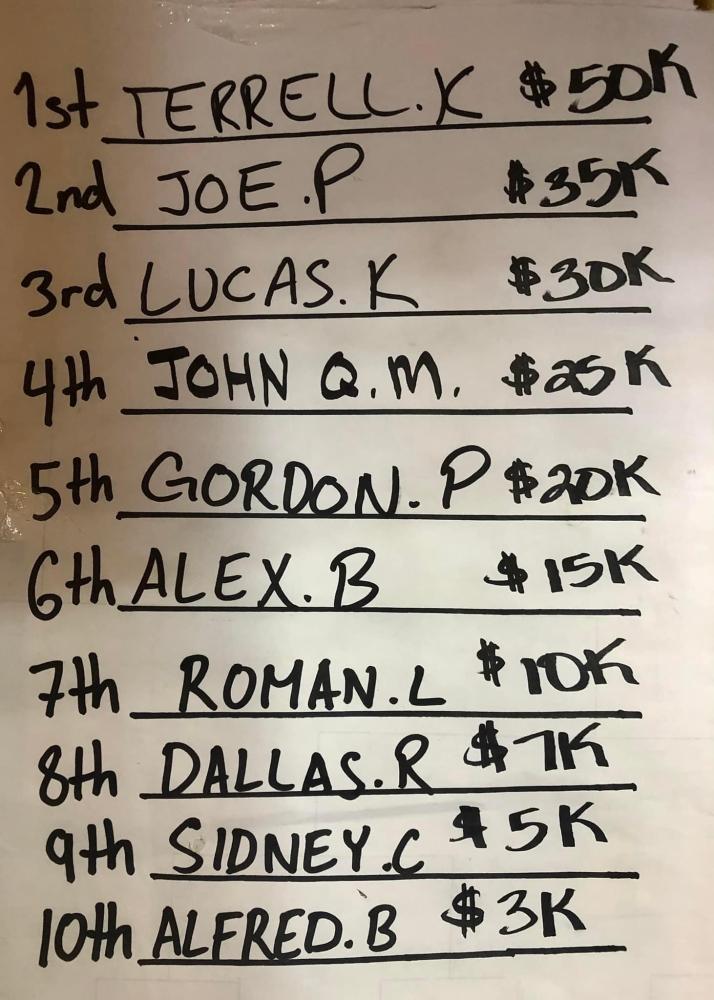 1st TERRELL.K $50K
2nd JOE.P $35K
3rd LUCAS.K $30K
4th JOHN Q.M. $25K
5th GORDON.P $20K
6th ALEX.B $15K
7th ROMAN.L $10K
8th DALLAS.R $7K
9th SIDNEY.C $5K
10th ALFRED.B $3K